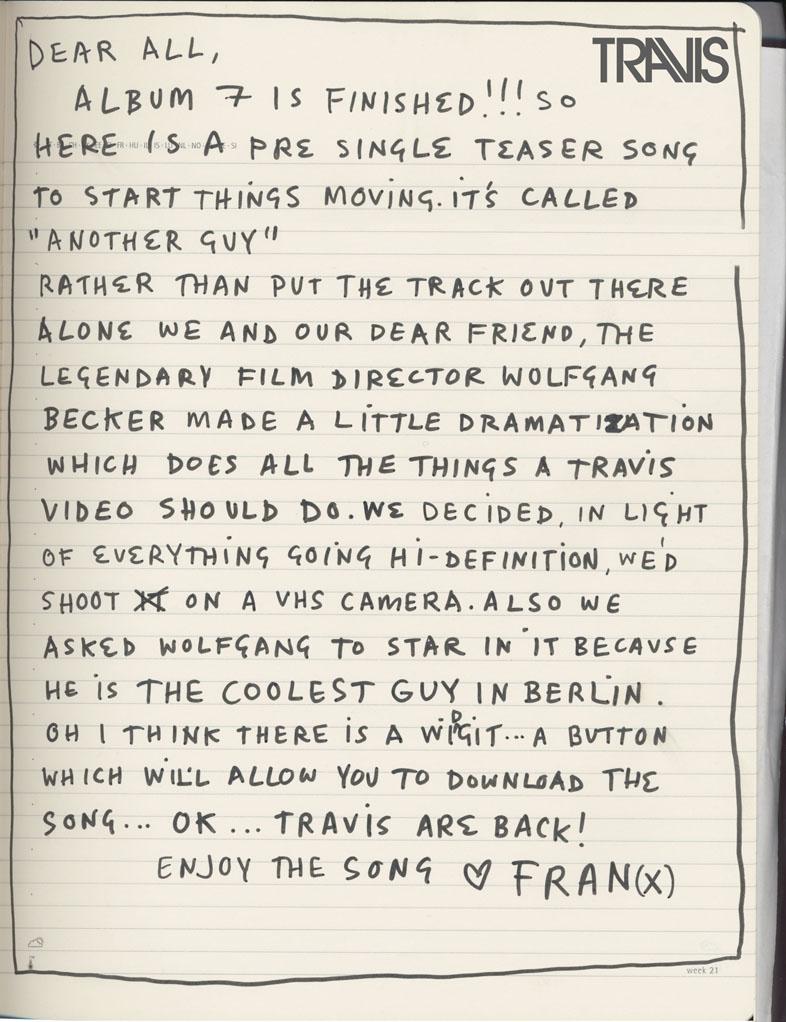 TRAVIS
DEAR ALL,
ALBUM 7 IS FINISHED!!! SO
HERE IS A PRE SINGLE TEASER SONG
TO START THINGS MOVING. IT'S CALLED
"ANOTHER GUY"
RATHER THAN PUT THE TRACK OUT THERE
ALONE WE AND OUR DEAR FRIEND, THE
LEGENDARY FILM DIRECTOR WOLFGANG
BECKER MADE A LITTLE DRAMATIZATION
WHICH DOES ALL THE THINGS A TRAVIS
VIDEO SHOULD DO. WE DECIDED, IN LIGHT
OF EVERYTHING GOING HI-DEFINITION, WE'D
SHOOT ON A VHS CAMERA. ALSO WE
ASKED WOLFGANG TO STAR IN IT BECAUSE
HE IS THE COOLEST GUY IN BERLIN.
OH I THINK THERE IS A WIDGIT... A BUTTON
WHICH WILL ALLOW YOU TO DOWNLOAD THE
SONG... OK... TRAVIS ARE BACK!
ENJOY THE SONG ♡ FRAN(X)
week 21